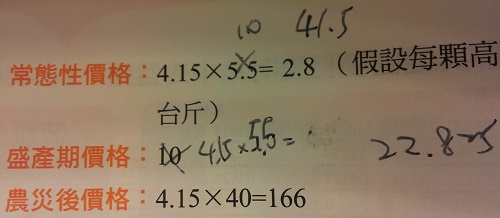 10 41.5
常態性價格：4.15×5.5= 2.8 （假設每顆高
台斤）
盛產期價格：10 4.15×5.5= 22.825
農災後價格：4.15×40=166